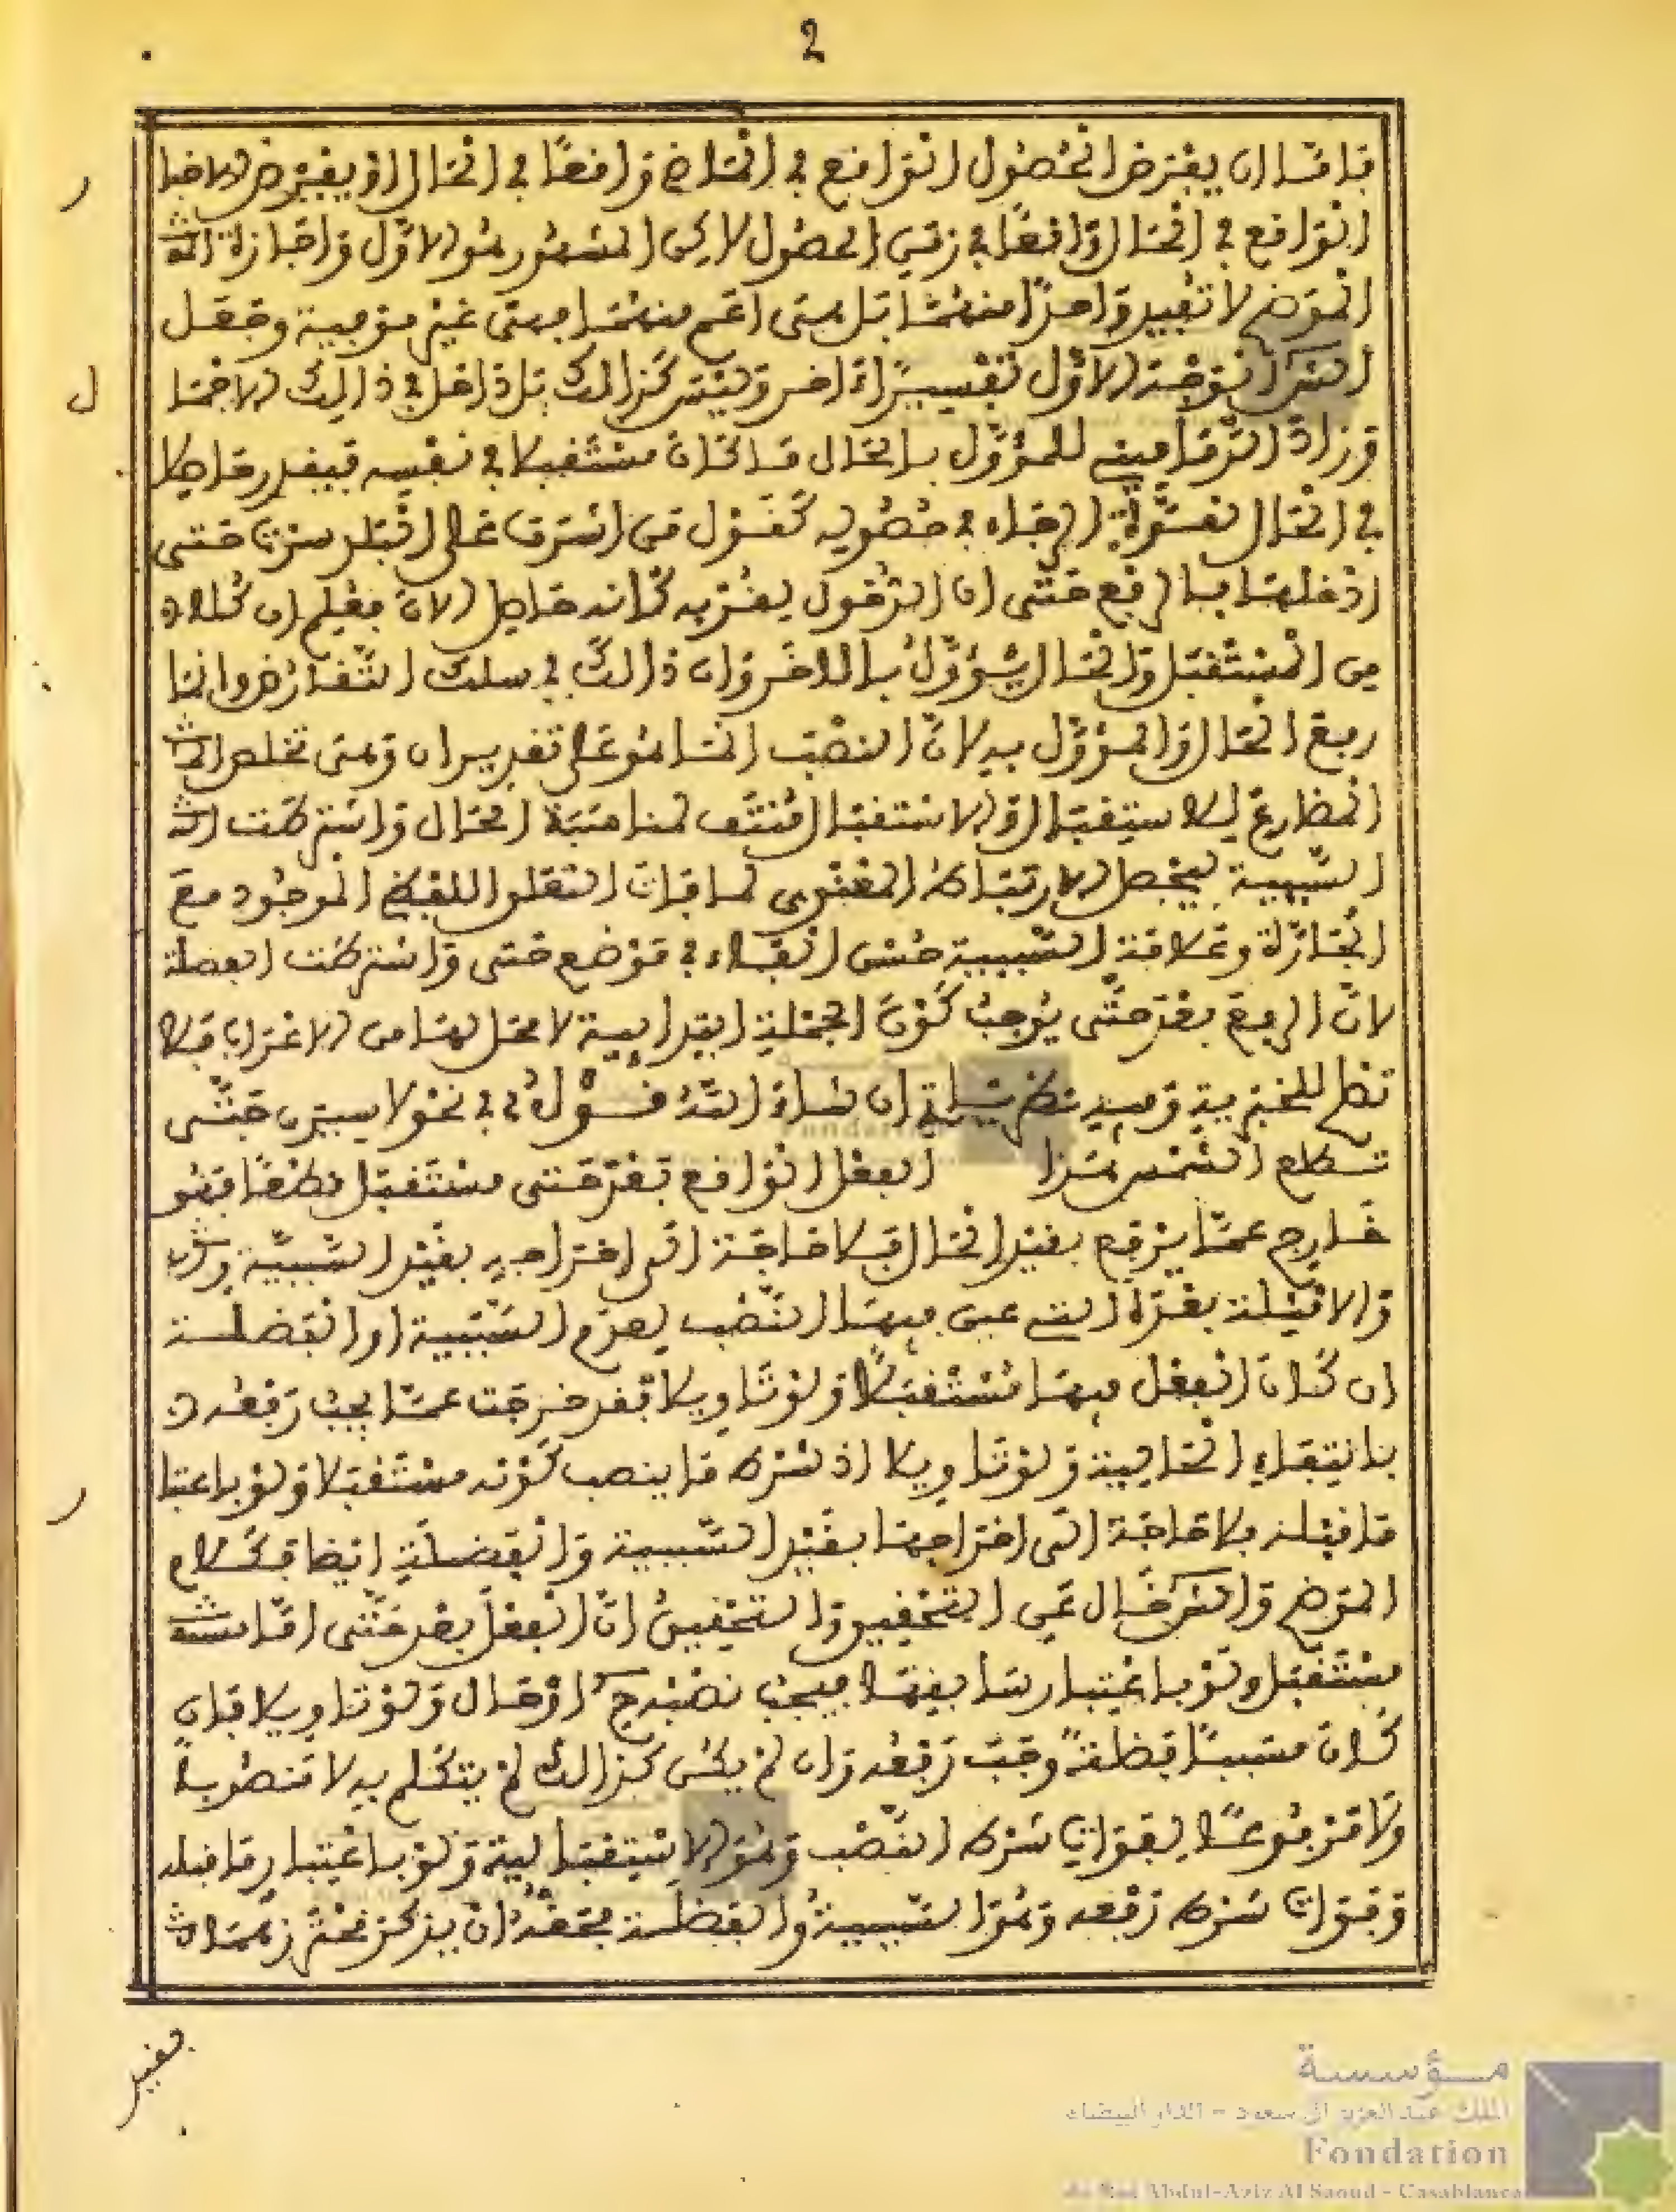 2
فاما ان يفترض الحصول الواقع في الماضي واقعا في الحال او يفترض الاخبا
ر
الواقع في الحال واقعا في زمن الحصول لاكن المشهور هو الاول واجازة
الموضح لا تفيد واحدا منهما بل هي اعم منهما فهي غير موفية وجعل
توجيه الاول تفسيرا اخر وليس كذالك بل داخل في ذالك الاجما
ل
وزاد الدماميني للمؤول بالحال ما كان مستقبلا في نفسه فيقدر حاصلا
في الحال لقوة الرجاء في حصوله كقول من اشرف على سرت حتى
ادخلها بالرفع حتى ان الدخول لقربه كانه حاصل الان فعلم ان كلا
من المستقبل والحال يؤول بالاخر وان ذالك في سلك التعارض وانما
رفع الحال والمؤول به لان النصب انما هو على تقدير ان وهي تخلص
المضارع للاستقبال والاستقبال منتف لمناسبة الحال واشترطت
السببية ليحصل الارتباط المعنوي لما فات التعلق اللفظي الموجود مع
الجارة وعلامة السببية حسن الفاء في موضع حتى واشترطت الفضلة
لان الرفع بعد حتى يوجب كون الجملة ابتدايية لا محل لها من الاعراب فلا
تصلح للخبرية وفيه نظر ياتي ان شاء الله قوله في نحو لا سيرن حتى
تطلع الشمس هذا الفعل الواقع بعد حتى مستقبل قطعا فهو
خارج عما يرفع بقيد الحال فلا حاجة الى اخراجه بقيد السببية
والامثلة بعده التي عين فيها النصب لعدم السببية او الفضلة
ان كان الفعل فيها مستقبلا ولو تاويلا فقد خرجت عما يجب رفعه
بانتفاء الحالية ولو تاويلا اذ شرط ما ينصب كونه مستقبلا ولو باعتبا
ر
ما قبله فلا حاجة الى اخراجها بقيد السببية والفضلة ايضا فكلام
الموضح خال عن التحقيق والتحقيق ان الفعل بعد حتى اما
مستقبل ولو باعتبار سابقها فيجب نصبه او حال ولو تاويلا فان
كان مسببا فضلة وجب رفعه وان لم يكن كذالك لم يتكلم به لا منصوبا
ولا مرفوعا لفوات شرط النصب وهو الاستقبالية ولو باعتبار ما قبله
وفوات شرط رفعه وهو السببية والفضلة فحقه ان يذكر
مؤسسة
الملك عبد العزيز آل سعود - الدار البيضاء
Fondation
du Roi Abdul-Aziz Al Saoud - Casablanca